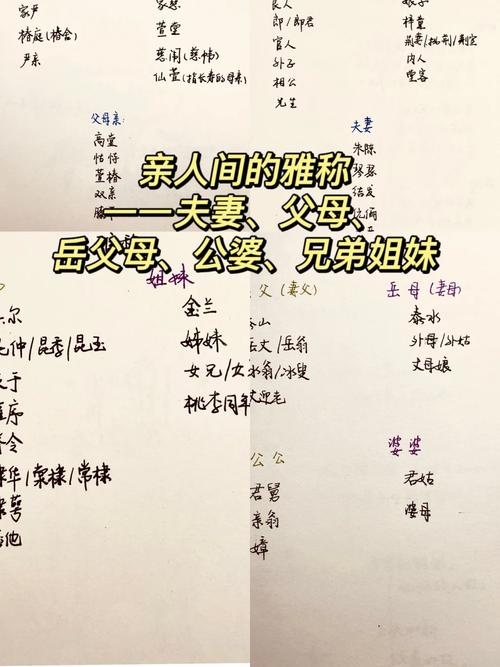 家严
椿庭(椿舍)
尹亲
家慈
萱堂
慈闱(慈帏)
仙萱(指长寿的母亲)
父母亲:
高堂
怙恃
萱椿
双亲
良人
郎/郎君
官人
外子
相公
先生
娘子
梓童
内人
堂客
夫妻
朱陈
琴瑟
结发
伉俪
亲人间的雅称
——夫妻、父母、
岳父母、公婆、兄弟姐妹
姐妹
金兰
姊妹
女兄/女
桃李同年
仲/昆季/昆玉
于
序
令
华/棠棣/常棣
萼
他
父(妻父)
山
丈/岳翁
冰翁/冰叟
丈迎老
岳母(妻母)
泰水
外母/外姑
丈母娘
公公
君舅
亲翁
嫜
婆婆
君姑
婆母